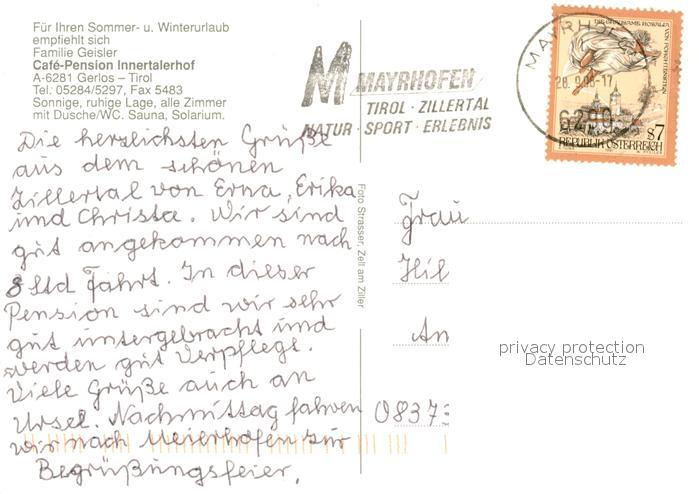 Für Ihren Sommer- u. Winterurlaub
empfiehlt sich
Familie Geisler
Café-Pension Innertalerhof
A-6281 Gerlos – Tirol
Tel.: 05284/5297, Fax 5483
Sonnige, ruhige Lage, alle Zimmer
mit Dusche/WC. Sauna, Solarium.
Die herzlichsten Grüße
aus dem schönen
Zillertal von Erna, Erika
und Christa. Wir sind
gut angekommen nach
8 Std Fahrt. In dieser
Pension sind wir sehr
gut untergebracht und
werden gut verpflegt.
Viele Grüße auch an
Ursel. Nachmittag fahren
wir nach Meierhofen zur
Begrüßungsfeier.
Foto Strasser, Zell am Ziller
MAYRHOFEN
TIROL · ZILLERTAL
NATUR · SPORT · ERLEBNIS
MAYRHOFEN
6290
DIE GRAUSAME ROSALIA
VON FORCHTENSTEIN
s7
REPUBLIK ÖSTERREICH
Frau
Hil
An
0837
privacy protection
Datenschutz